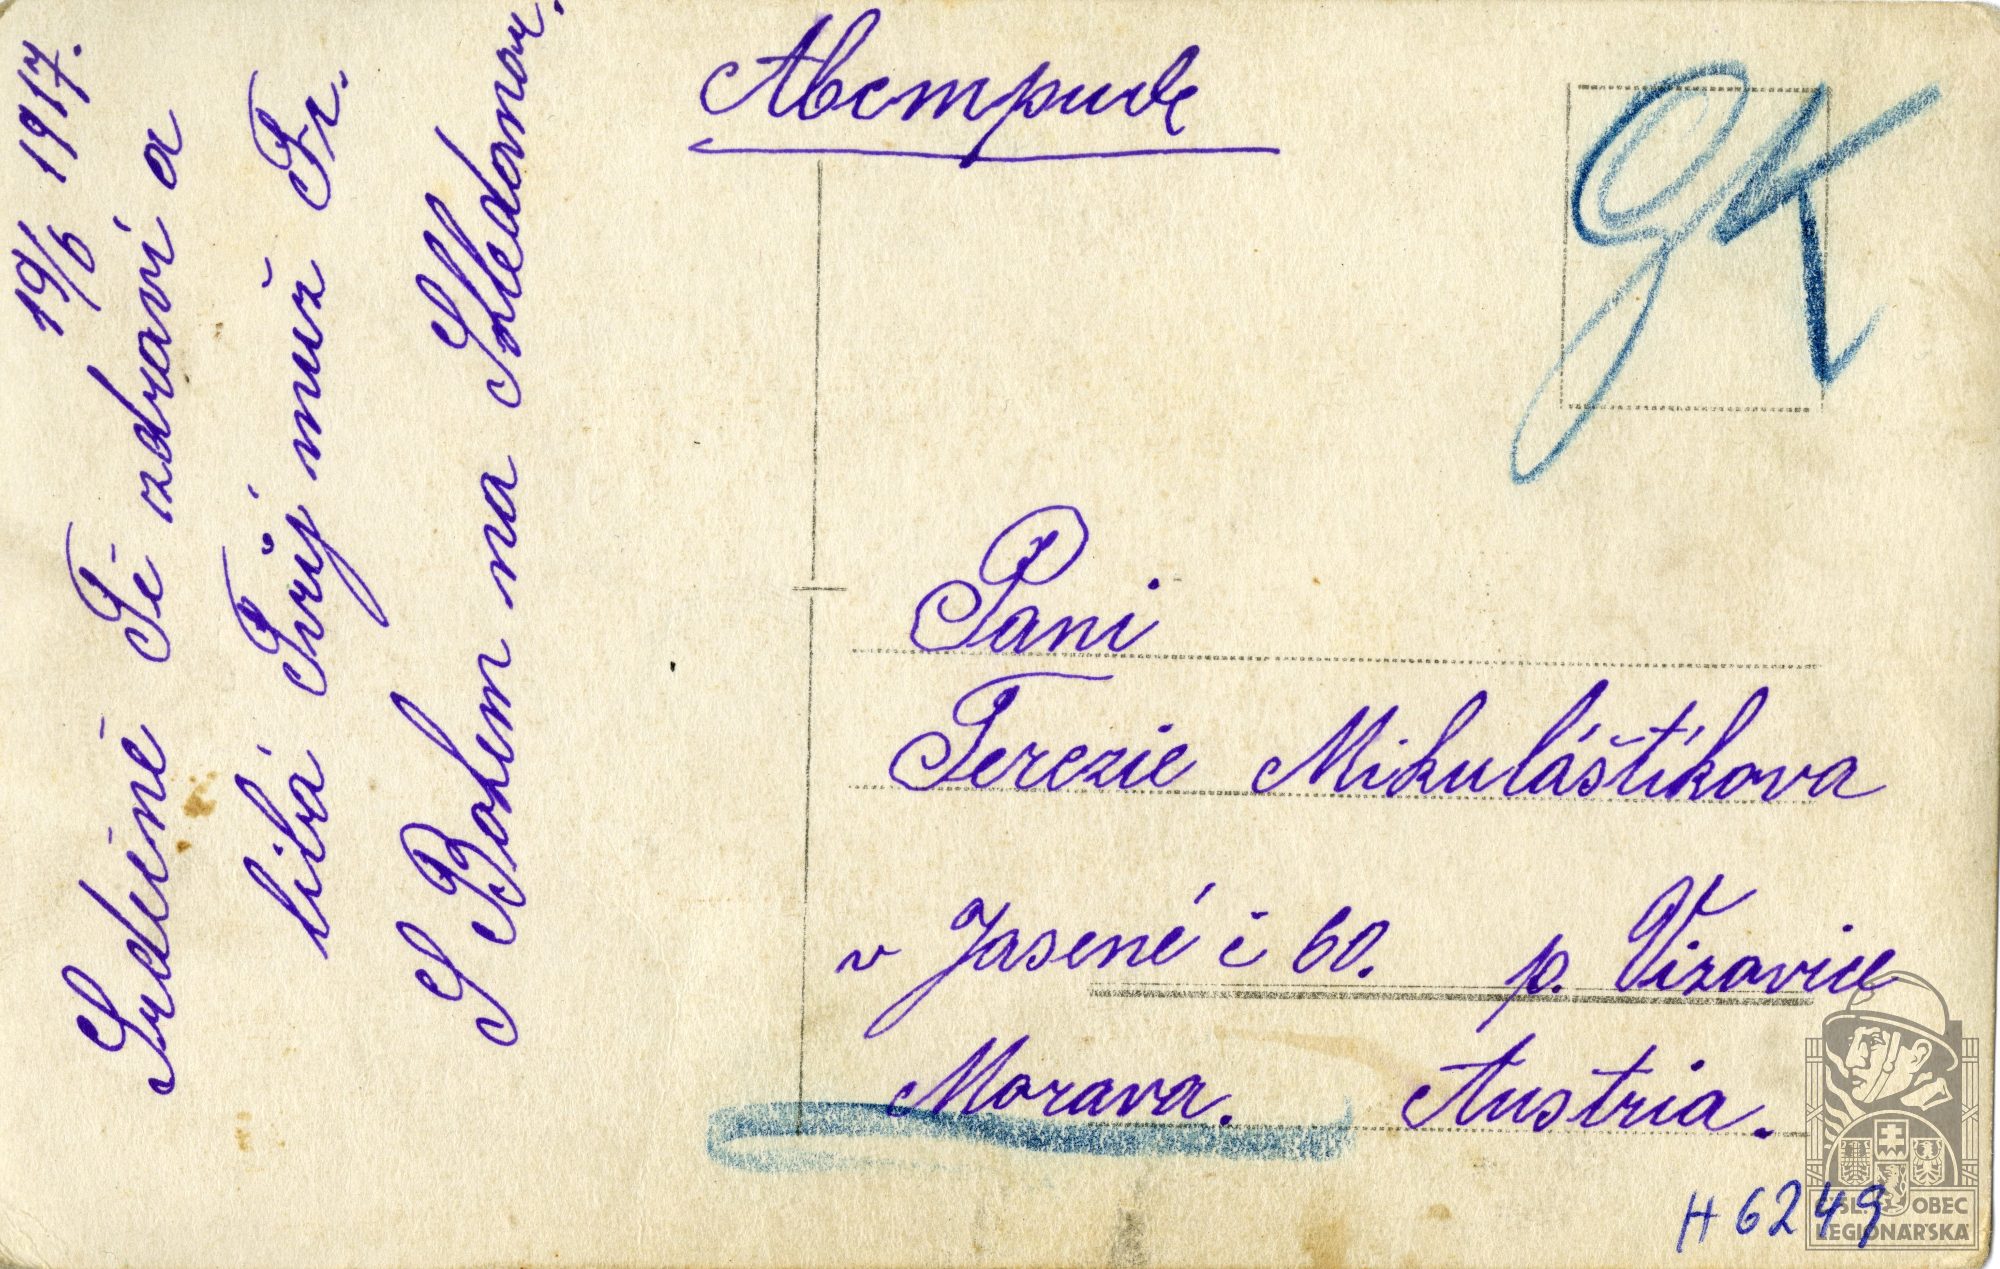 19/6 1917.
Srdečně Tě zdraví a
líbá Tvůj muž Fr.
S Bohem na Shledanou.
Abcmpuck
GK
Pani
Terezie Mikuláštíkova
v Jasené č 60. p. Vizovice
Morava. Austria.
H 6249
ČSL. OBEC
LEGIONÁŘSKÁ